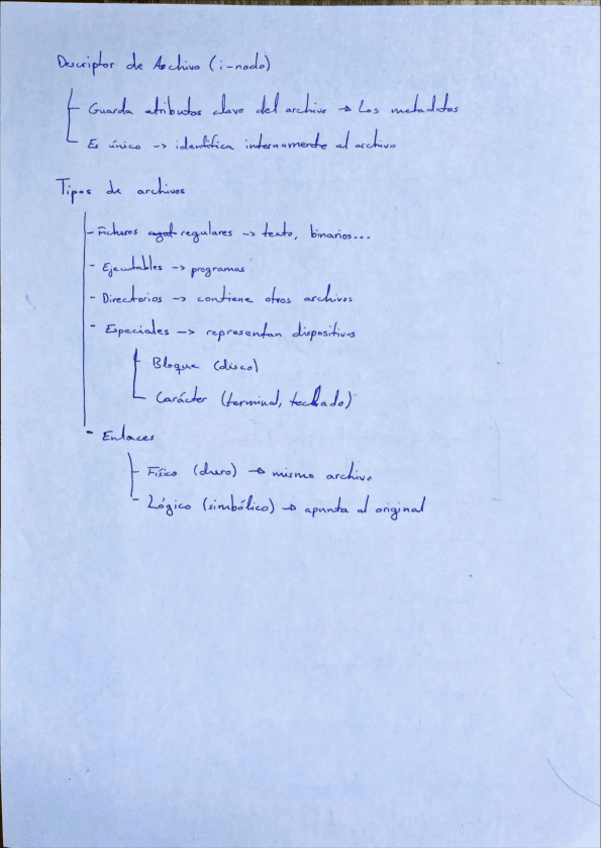 Descriptor de Archivo (i-nodo)
Guarda atributos clave del archivo → Los metadatos
Es único → identifica internamente al archivo
Tipos de archivos
- Ficheros regulares → texto, binarios...
- Ejecutables → programas
- Directorios → contiene otros archivos
- Especiales → representan dispositivos
Bloque (disco)
Carácter (terminal, teclado)
- Enlaces
- Físico (duro) → mismo archivo
- Lógico (simbólico) → apunta al original